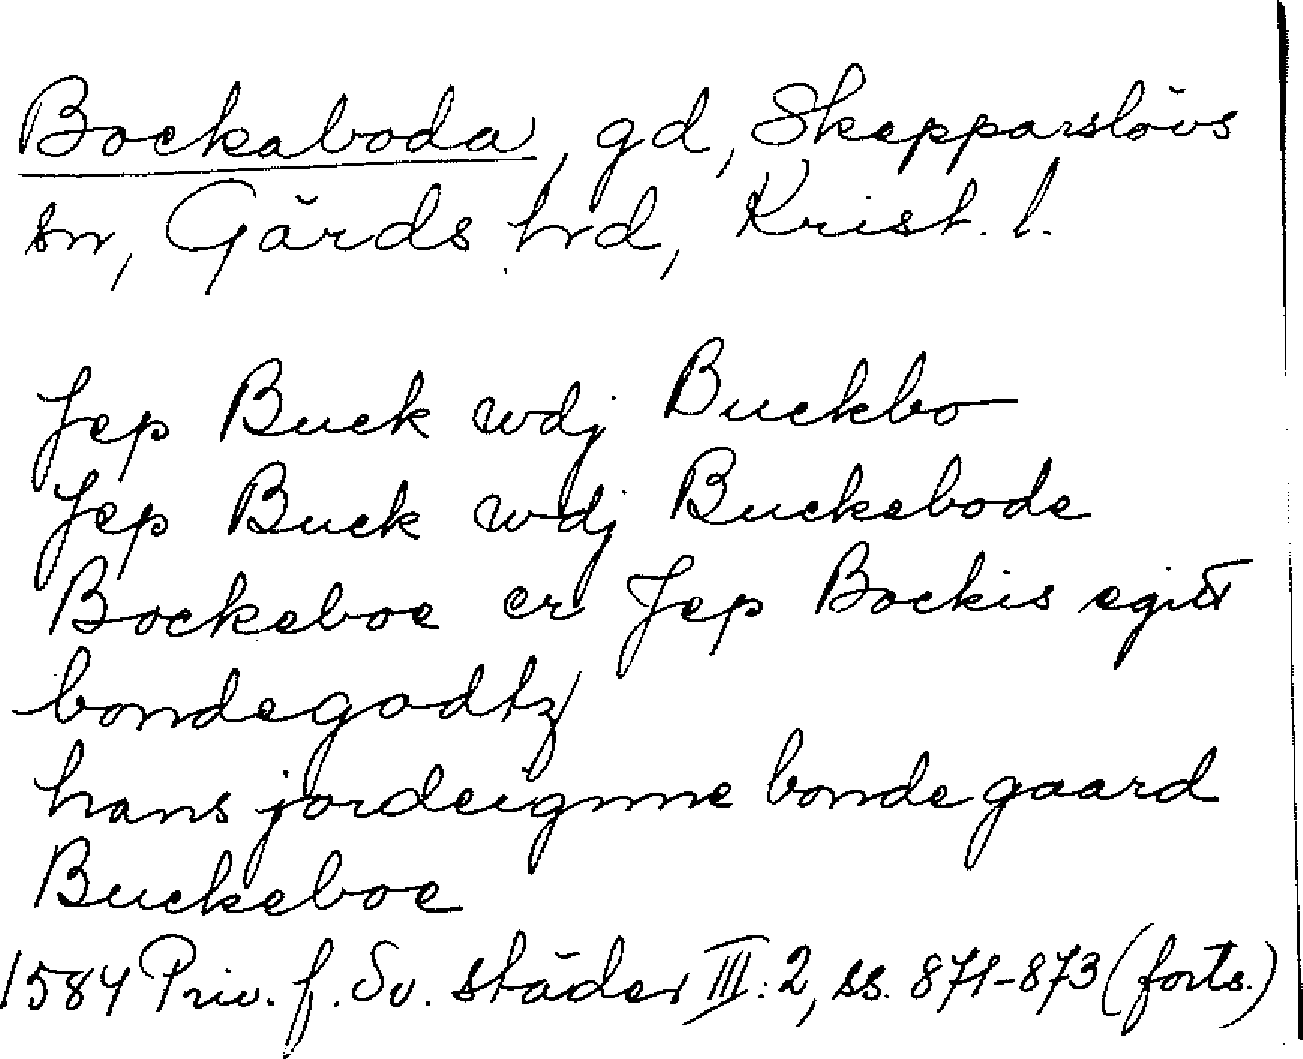 Bockaboda, gd, Skepparslövs
sn, Gärds hrd, Krist. l.
Jep Buck wdj Buckbo
Jep Buck wdj Buckebode
Bockeboe er Jep Bockis egit
bondegodtz
hans jordeignne bondegaard
Buckeboe
1584 Priv. f. Sv. städer III: 2, ss. 871-873 (forts.)